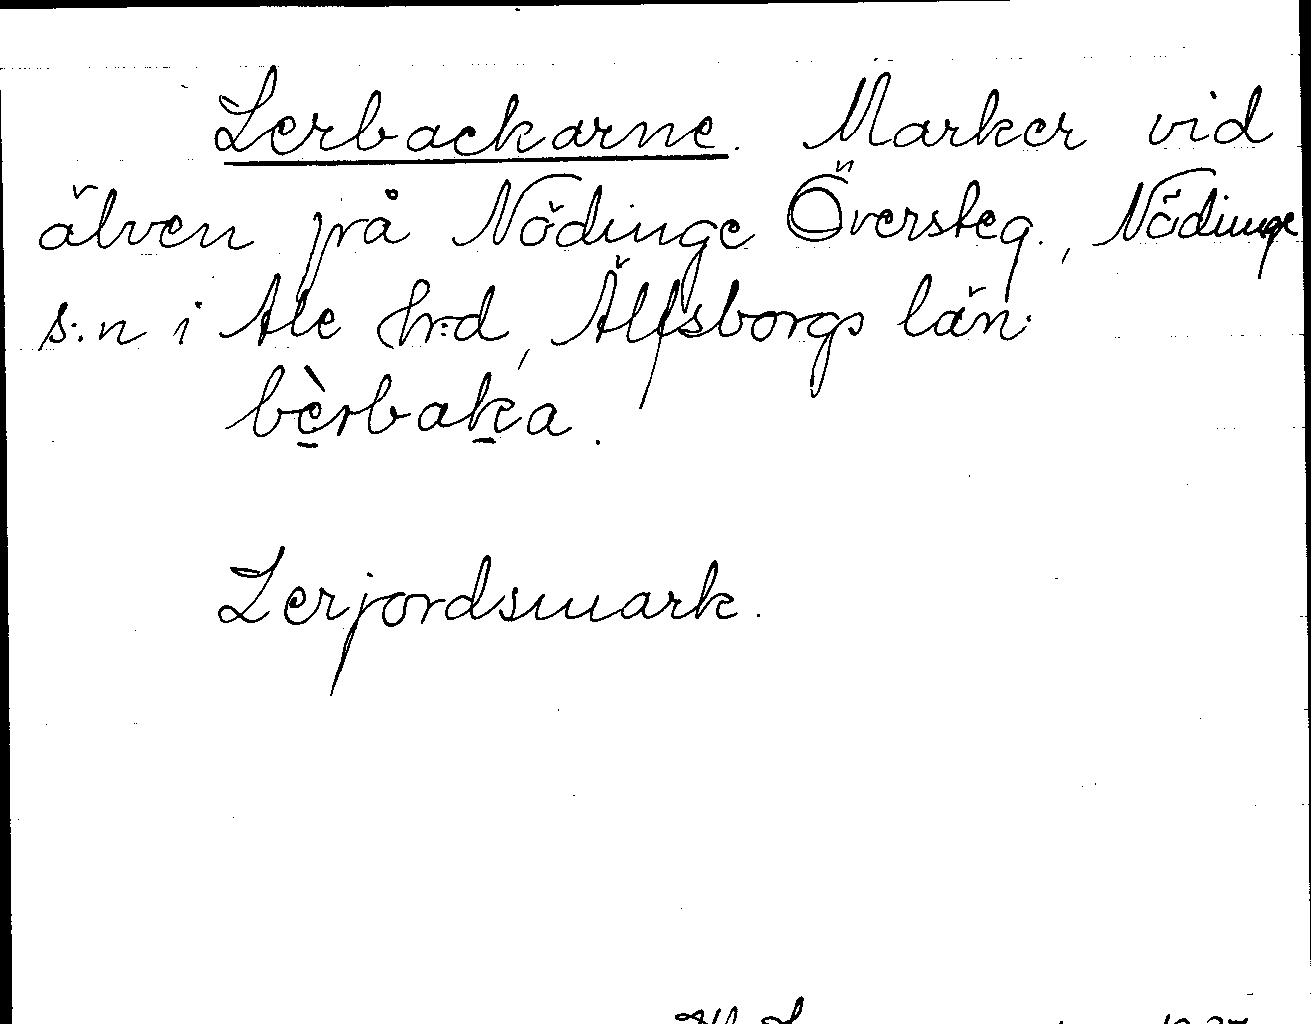 Lerbackarne. Marker vid
älven på Nödinge Översteg., Nödinge
s:n i Ale hrd, Älfsborgs län.
bèrbaka.
Lerjordsmark.